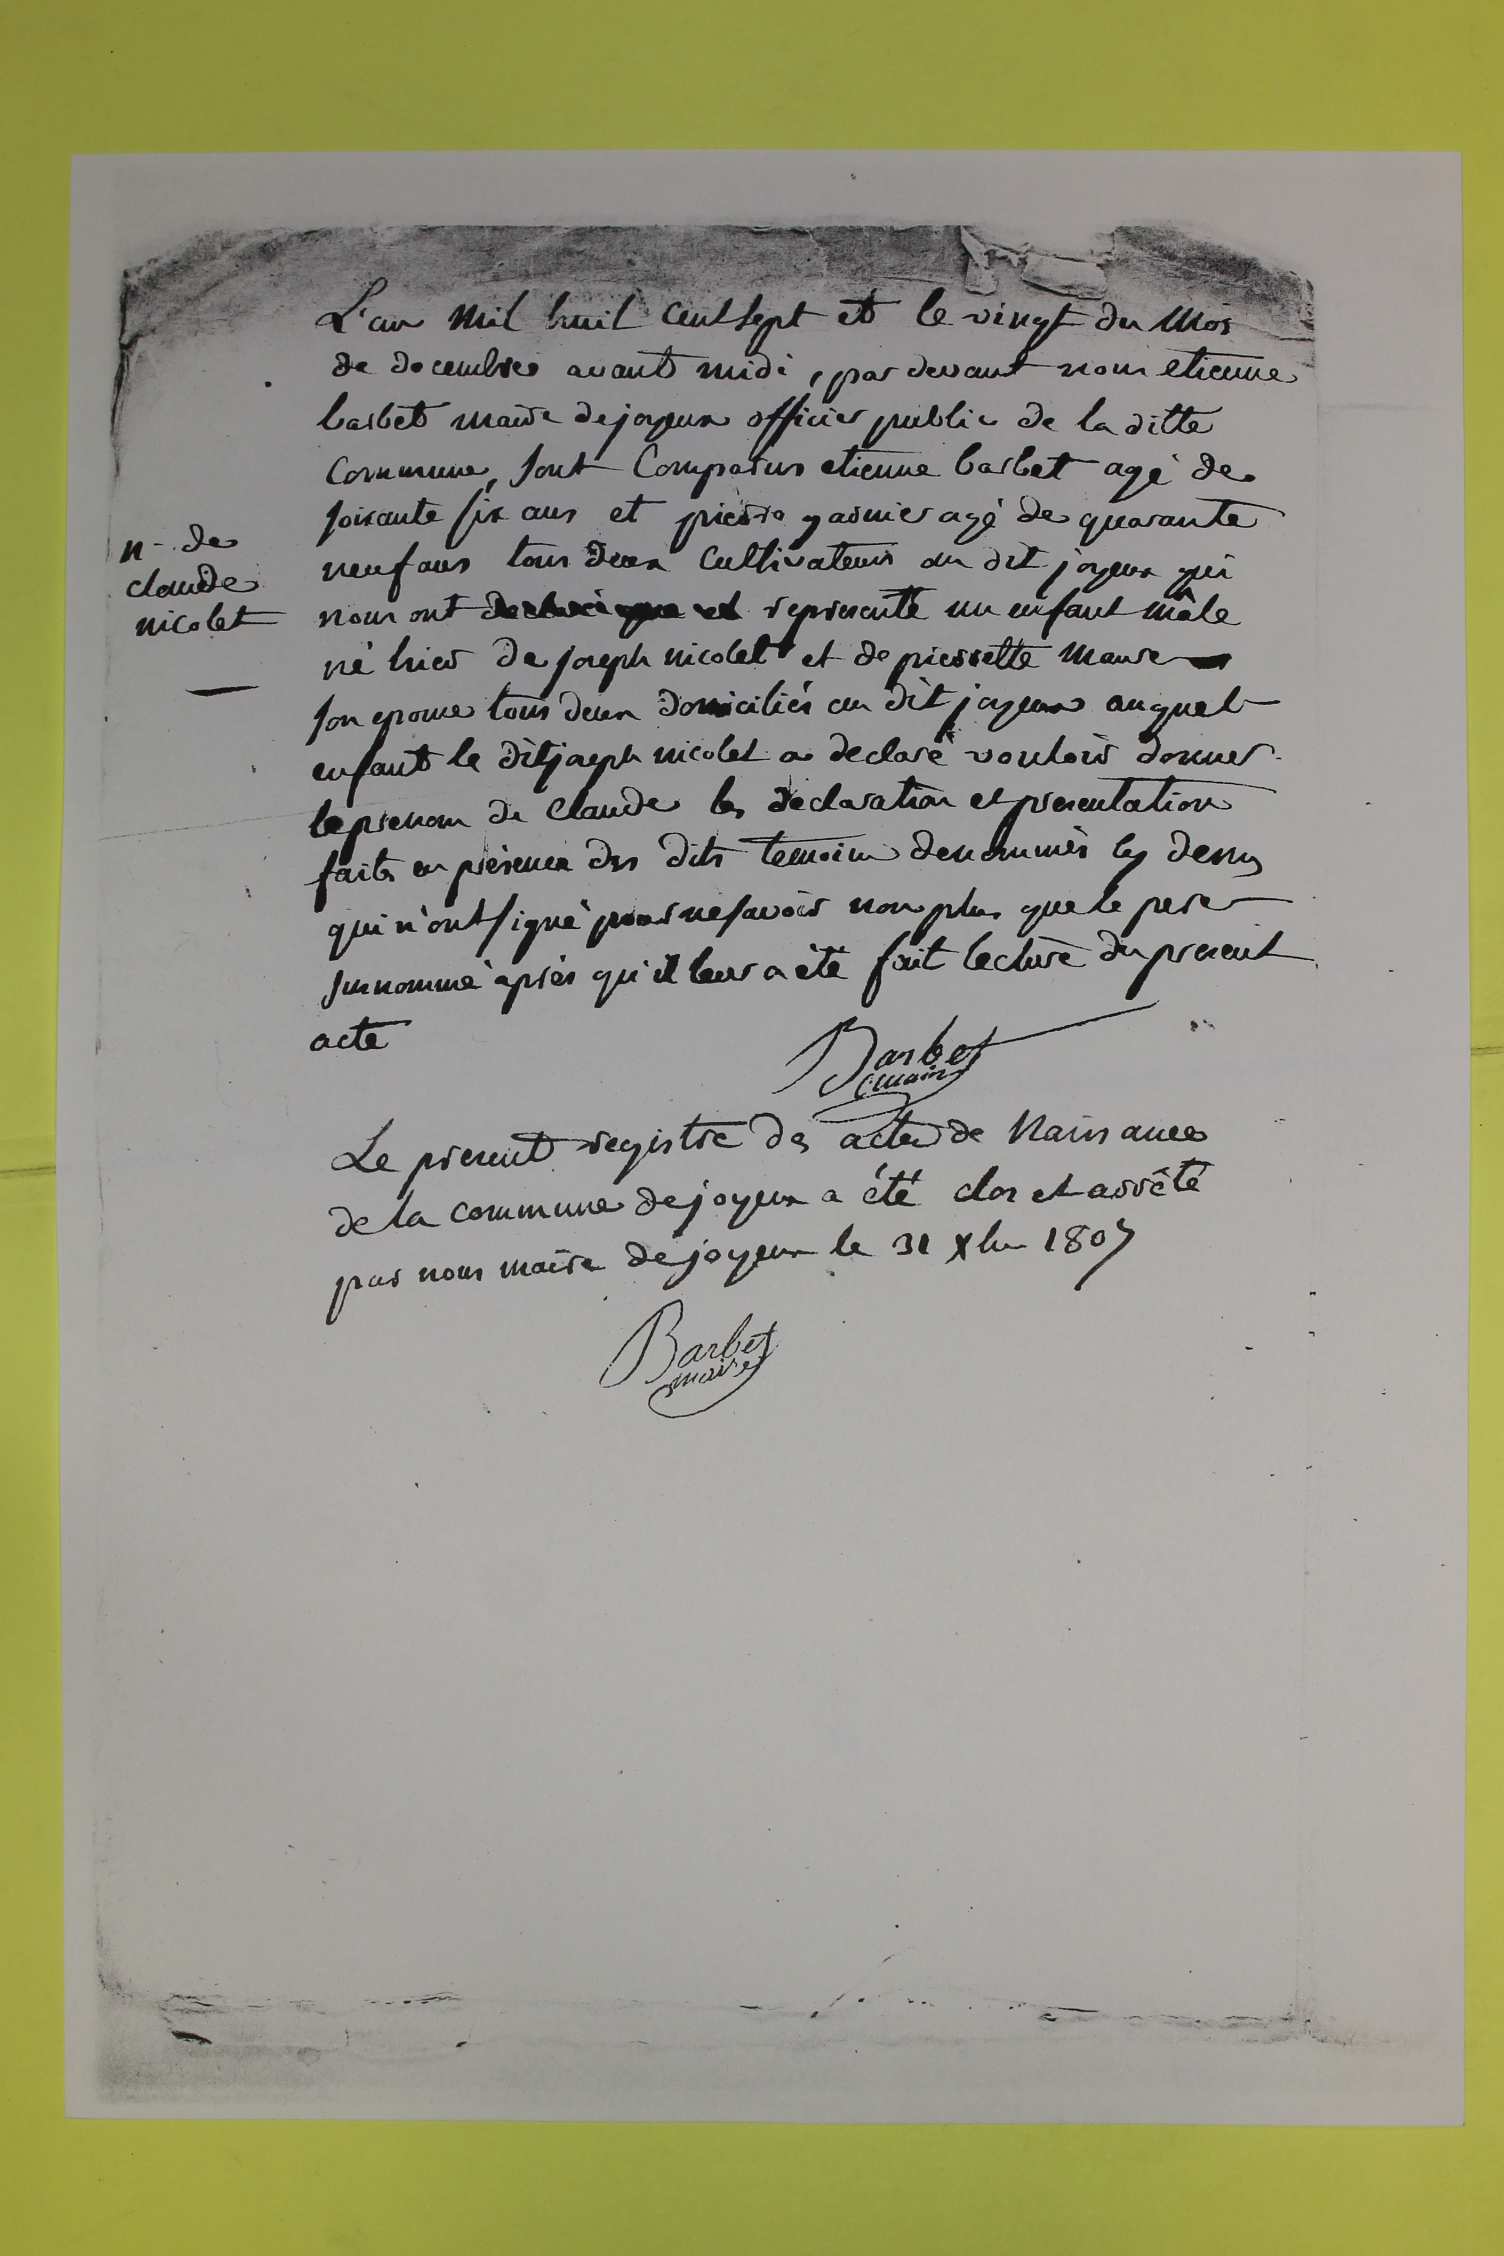 L'an mil huit cent sept et le vingt du mois
de decembre avant midi, par devant nous etienne
barbet maire de joyeux officier public de la ditte
commune, sont comparus etienne barbet agé de
soixante six ans et pierre garnier agé de quarante
n- de
claude
nicolet
neuf ans tous deux cultivateurs au dit joyeux qui
nous ont representé un enfant mâle
né hier de joseph nicolet et de pierrette
son epouse tous deux domiciliés au dit joyeux auquel
enfant le dit joseph nicolet a declaré vouloir donner
le prenom de claude les declaration et presentation
faites en présence des dits temoins denommés cy dessus
qui n'ont signé pour ne savoir non plus que le pere
surnommé après qu'il leur a été fait lecture du present
acte
Barbet
maire
Le present registre des actes de Naissance
de la commune de joyeux a été clos et arrêté
par nous maire de joyeux le 31 Xbre 1807
Barbet
maire